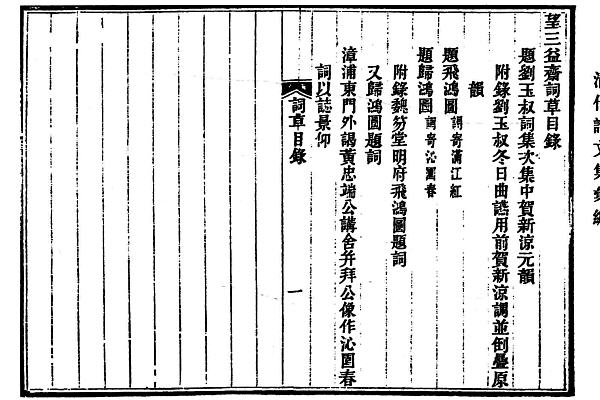 望三益齋詞草目錄
題劉玉叔詞集次集中賀新涼元韻
附錄劉玉叔冬日曲讌用前賀新涼調並倒疊原
韻
題飛鴻圖調寄滿江紅
題歸鴻圖調寄沁園春
附錄魏芴堂明府飛鴻圖題詞
又歸鴻圖題詞
漳浦東門外謁黃忠端公講舍并拜公像作沁園春
詞以誌景仰
詞草目錄
一